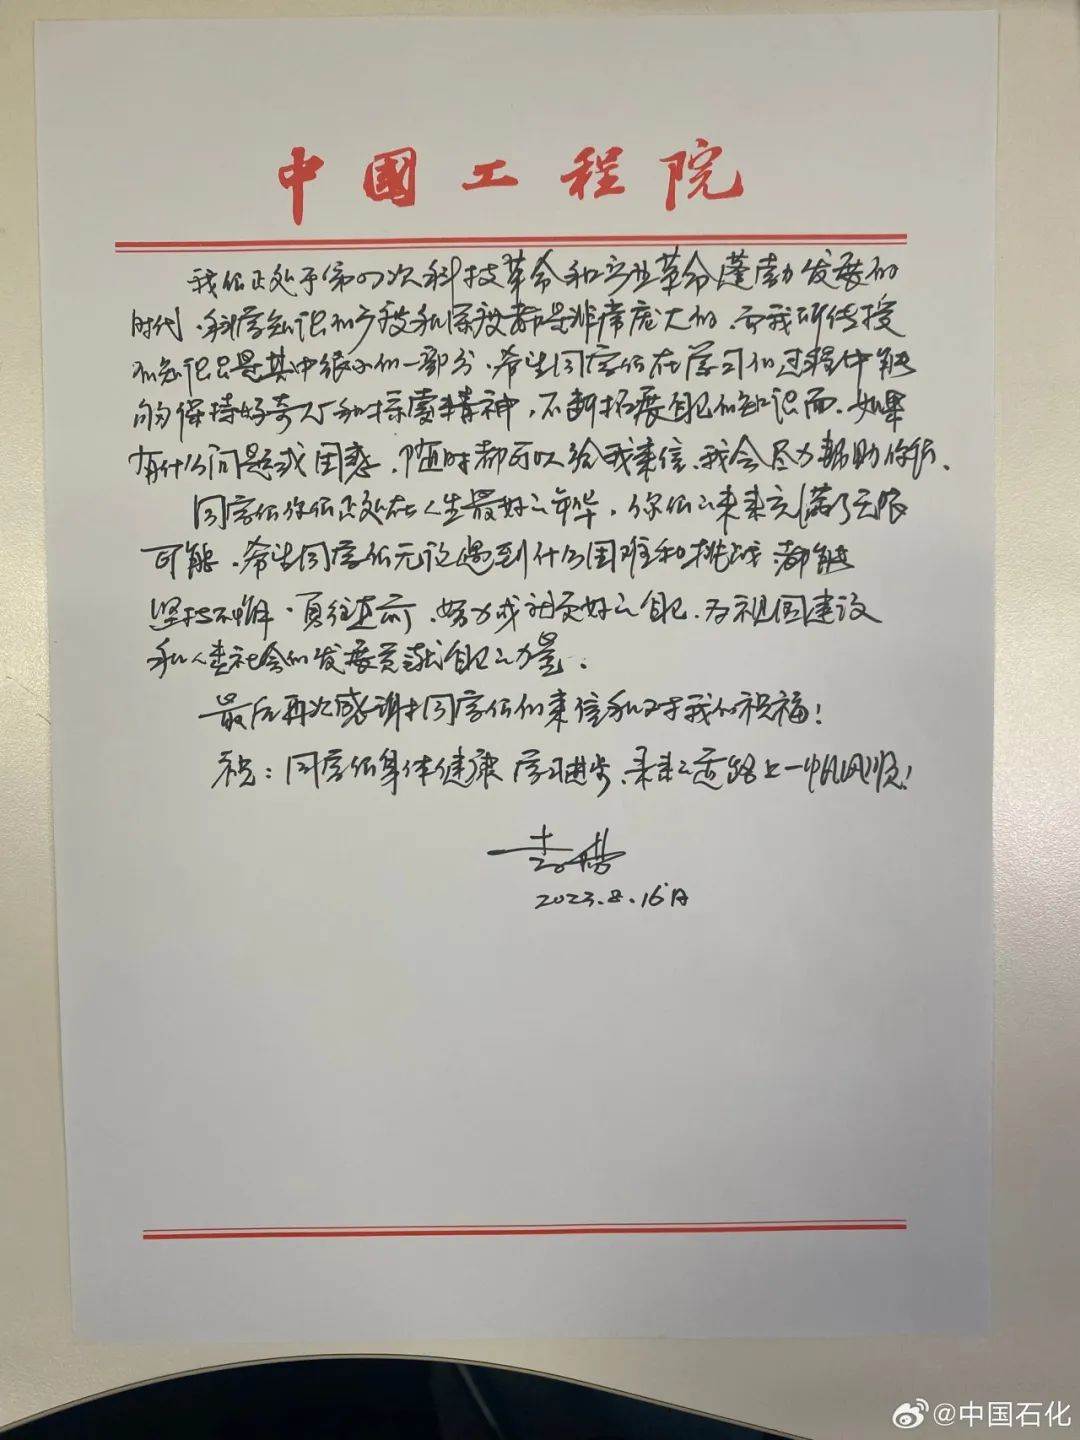 中国工程院
我们正处于第四次科技革命和产业革命蓬勃发展的
时代,科学知识的广度和深度都是非常庞大的,而我所传授
的知识只是其中很小的一部分,希望同学们在学习的过程中能
够保持好奇心和探索精神,不断拓展自己的知识面,如果
有什么问题或困惑,随时都可以给我来信,我会尽力帮助你们.
同学们你们正处在人生最好的年华,你们的未来充满了无限
可能,希望同学们无论遇到什么困难和挑战,都能
坚持不懈,勇往直前,努力成为更好的自己,为祖国建设
和人类社会的发展贡献自己的力量.
最后再次感谢同学们的来信和对于我的祝福!
祝:同学们身体健康 学习进步,未来的道路上一帆风顺!
2023.8.16日
@中国石化